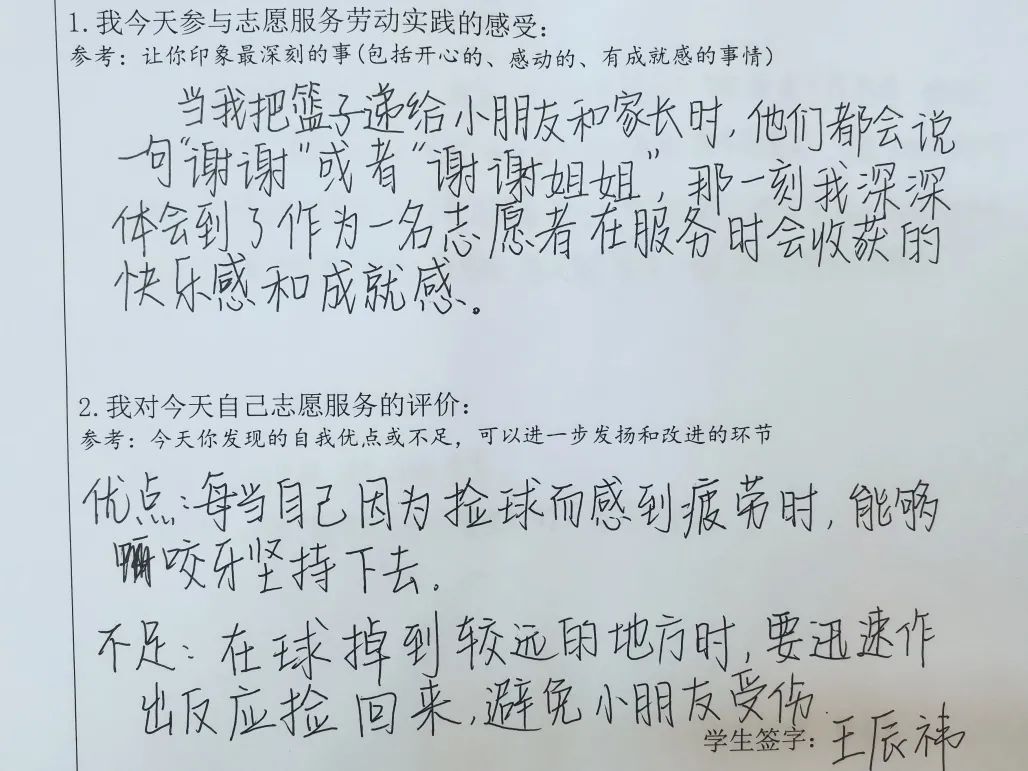 1.我今天参与志愿服务劳动实践的感受:
参考：让你印象最深刻的事(包括开心的、感动的、有成就感的事情)
当我把篮子递给小朋友和家长时，他们都会说
一句“谢谢”或者“谢谢姐姐”，那一刻我深深
体会到了作为一名志愿者在服务时会收获的
快乐感和成就感。
2.我对今天自己志愿服务的评价:
参考：今天你发现的自我优点或不足，可以进一步发扬和改进的环节
优点:每当自己因为捡球而感到疲劳时，能够
咬牙坚持下去.
不足：在球掉到较远的地方时，要迅速作
出反应捡回来，避免小朋友受伤.
学生签字：王辰祎